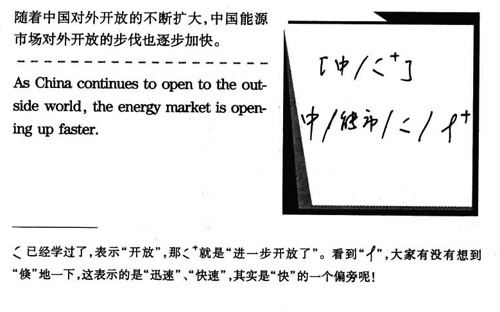 随着中国对外开放的不断扩大,中国能源
市场对外开放的步伐也逐步加快。
As China continues to open to the out-
side world, the energy market is open-
ing up faster.
[中/く⁺]
中/能市/く/亻⁺
く已经学过了,表示“开放”,那く⁺就是“进一步开放了”。看到“亻”,大家有没有想到
“倏”地一下,这表示的是“迅速”、“快速”,其实是“快”的一个偏旁呢!